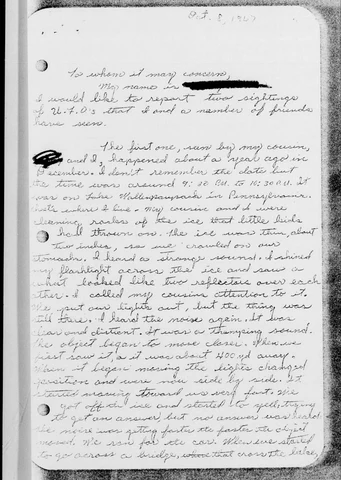 Oct. 8, 1967
To whom it may concern,
My name is
I would like to report two sightings
of U.F.O's that I and a number of friends
have seen.
The first one, seen by my cousin,
and I, happened about a year ago in
December. I don't remember the date but
the time was around 9:30 P.M. to 10:30 P.M. It
was on Lake in Pennsylvania.
that's where I live. My cousin and I were
clearing rocks off the ice that little kids
had thrown on. The ice was thin, about
two inches, so we crawled on our
stomachs. I heard a strange sound. I shined
my flashlight across the ice and saw
what looked like two reflectors over each
other. I called my cousins attention to it.
We put our lights out, but the thing was
still there. I heard the noise again. It was
clear and distinct. It was a thumping sound.
The object began to move closer. When we
first saw it, it was about 400 yd. away.
When it began moving the lights changed
position and were now side by side. It
started moving toward us very fast. We
got off the ice and started to yell, trying
to get an answer but no answer was heard.
The noise was getting faster the faster the object
moved. We ran for the car. When we started
to go across a bridge, that cross the lake,